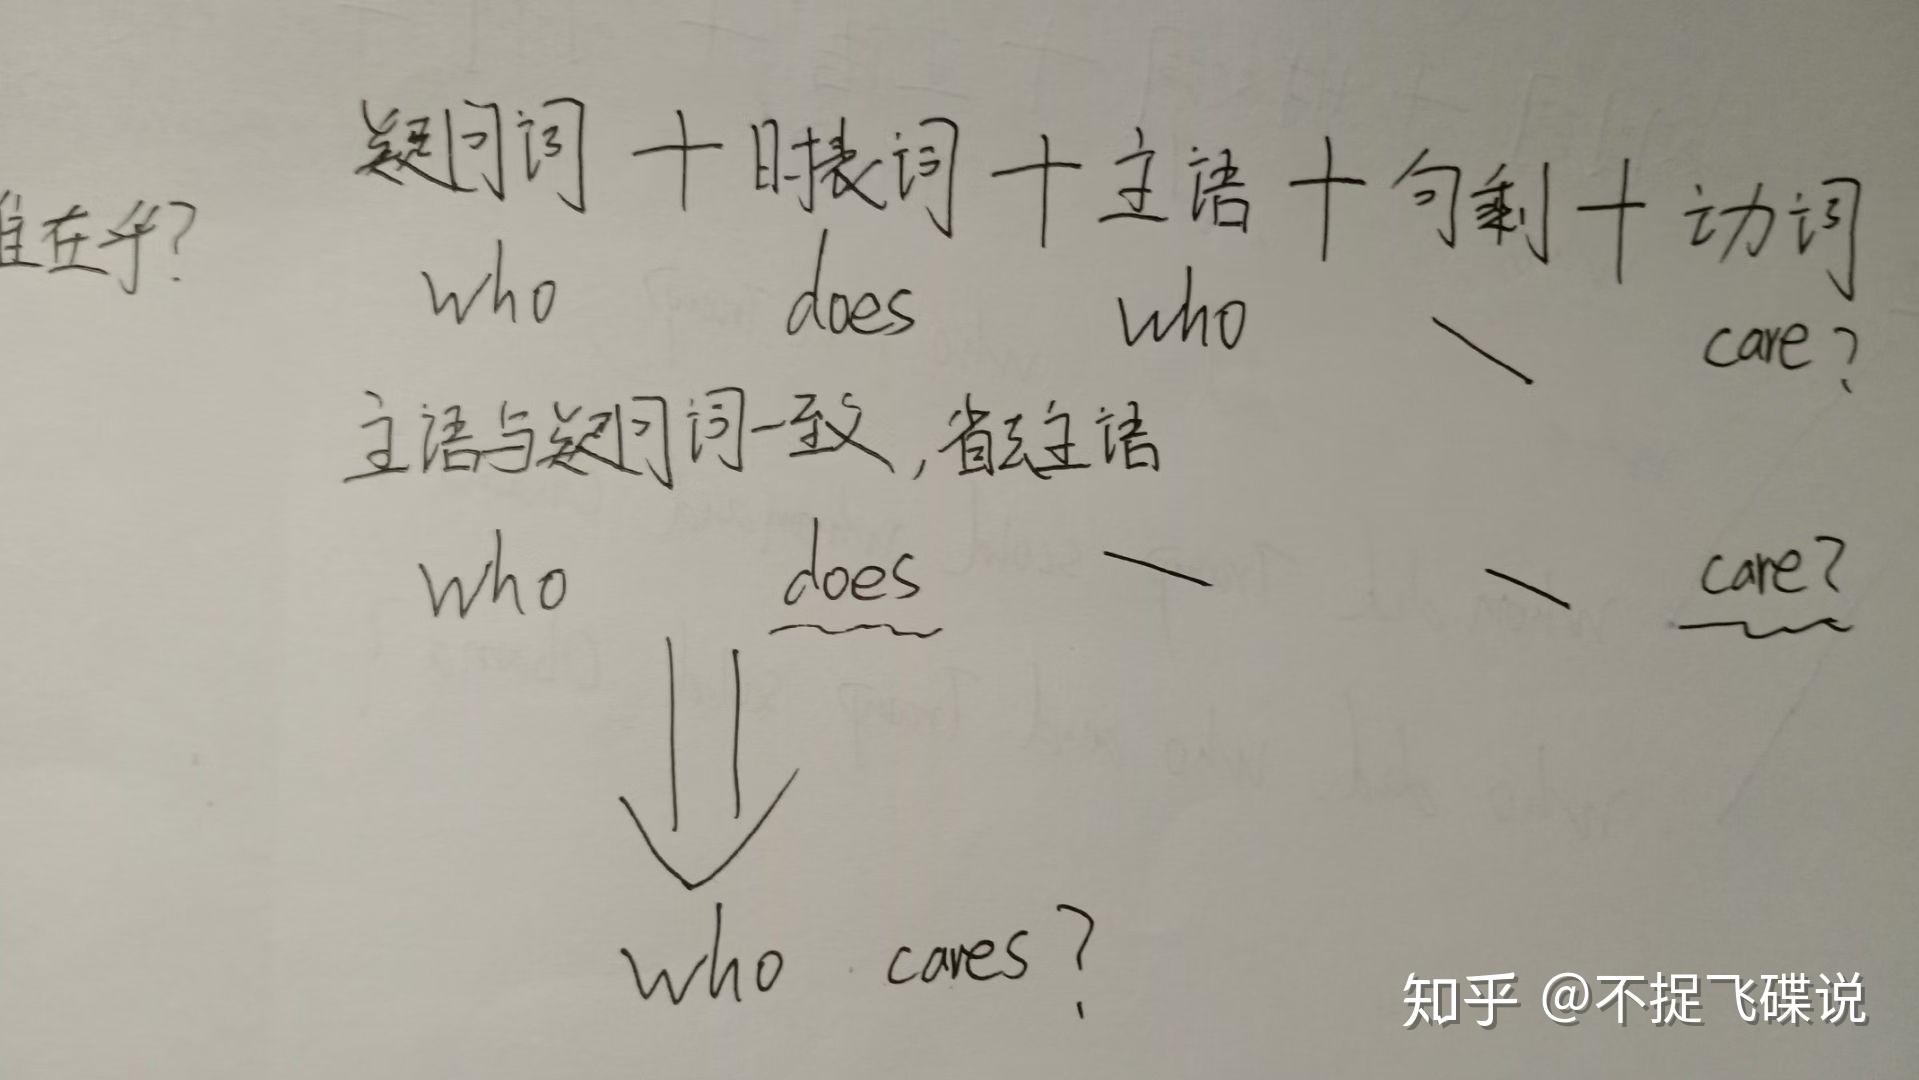 疑问词 + 时表词 + 主语 + 句剩 + 动词
谁在乎?
who does who \ care?
主语与疑问词一致,省去主语
who does \ \ care?
who cares?
知乎 @不捉飞碟说